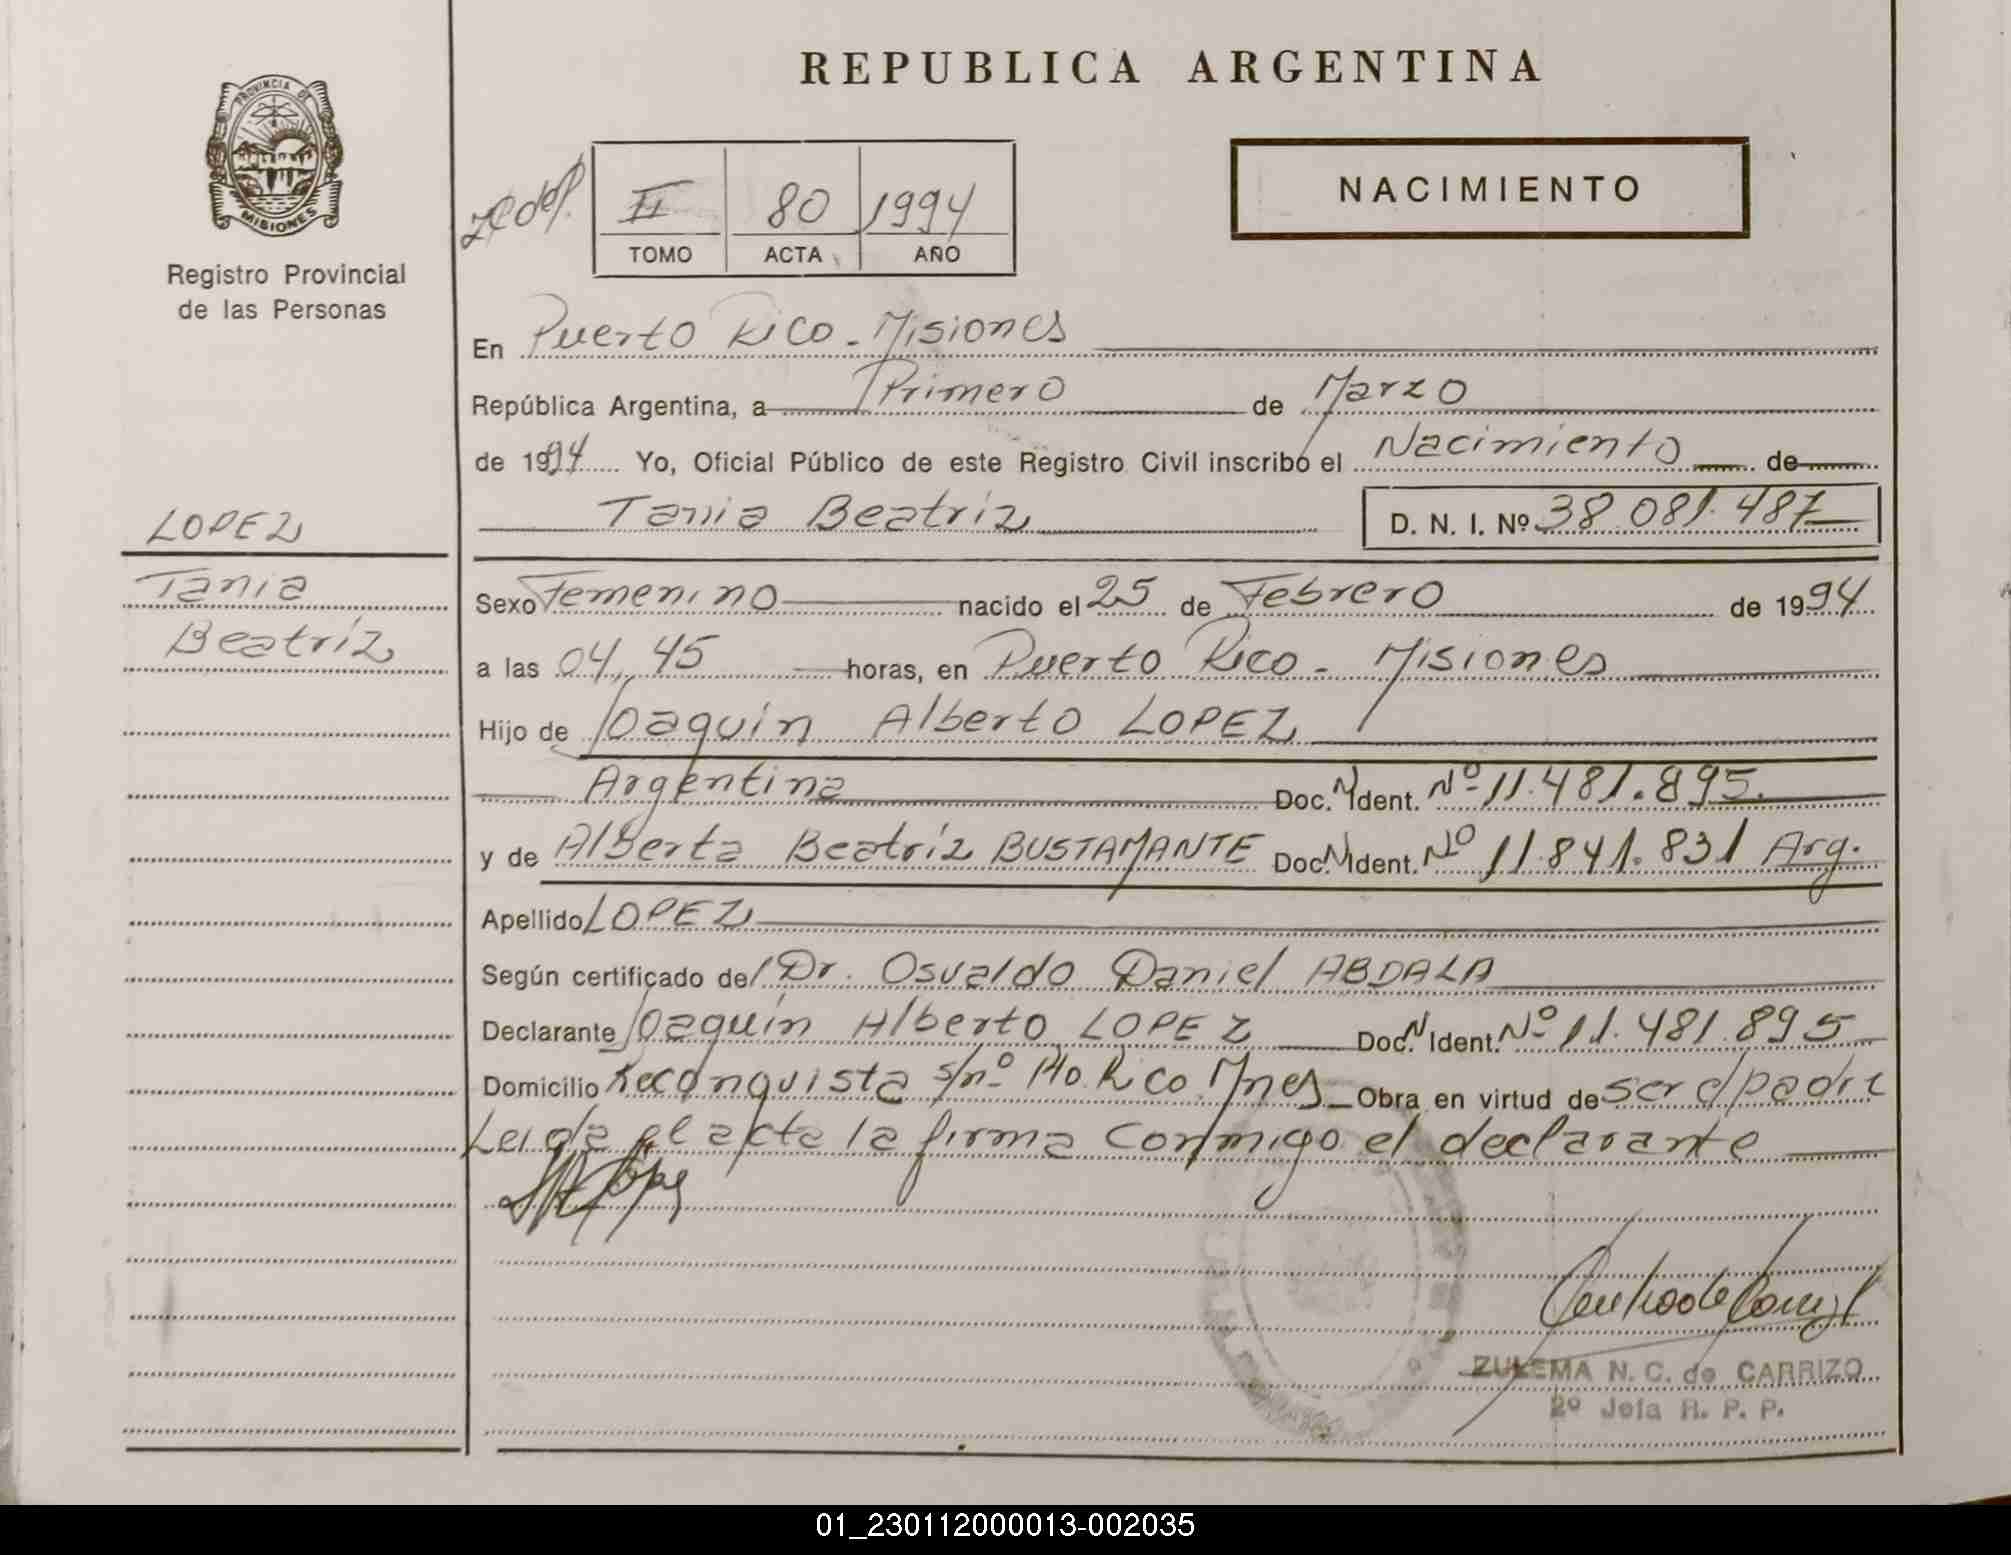 REPUBLICA ARGENTINA
PROVINCIA DE
MISIONES
Registro Provincial
de las Personas
II 80 1994
TOMO ACTA AÑO
NACIMIENTO
En Puerto Rico - Misiones
República Argentina, a Primero de Marzo
de 1994 Yo, Oficial Público de este Registro Civil inscribo el Nacimiento de
Tania Beatríz D. N. I. Nº 38.081.487
LOPEZ
Tania
Beatríz
Sexo Femenino nacido el 25 de Febrero de 1994
a las 04,45 horas, en Puerto Rico - Misiones
Hijo de Joaquín Alberto LOPEZ
Argentina Doc. N Ident. Nº 11.481.895.
y de Alberta Beatríz BUSTAMANTE Doc. N Ident. Nº 11.841.831 Arg.
Apellido LOPEZ
Según certificado del Dr. Osvaldo Daniel ABDALA
Declarante Joaquín Alberto LOPEZ Doc. N Ident. Nº 11.481.895
Domicilio Reconquista s/nº Pto. Rico Mnes Obra en virtud de ser el padre
Leida el acta la firma conmigo el declarante
ZULEMA N. C. de CARRIZO
2º Jefa R. P. P.
01_230112000013-002035